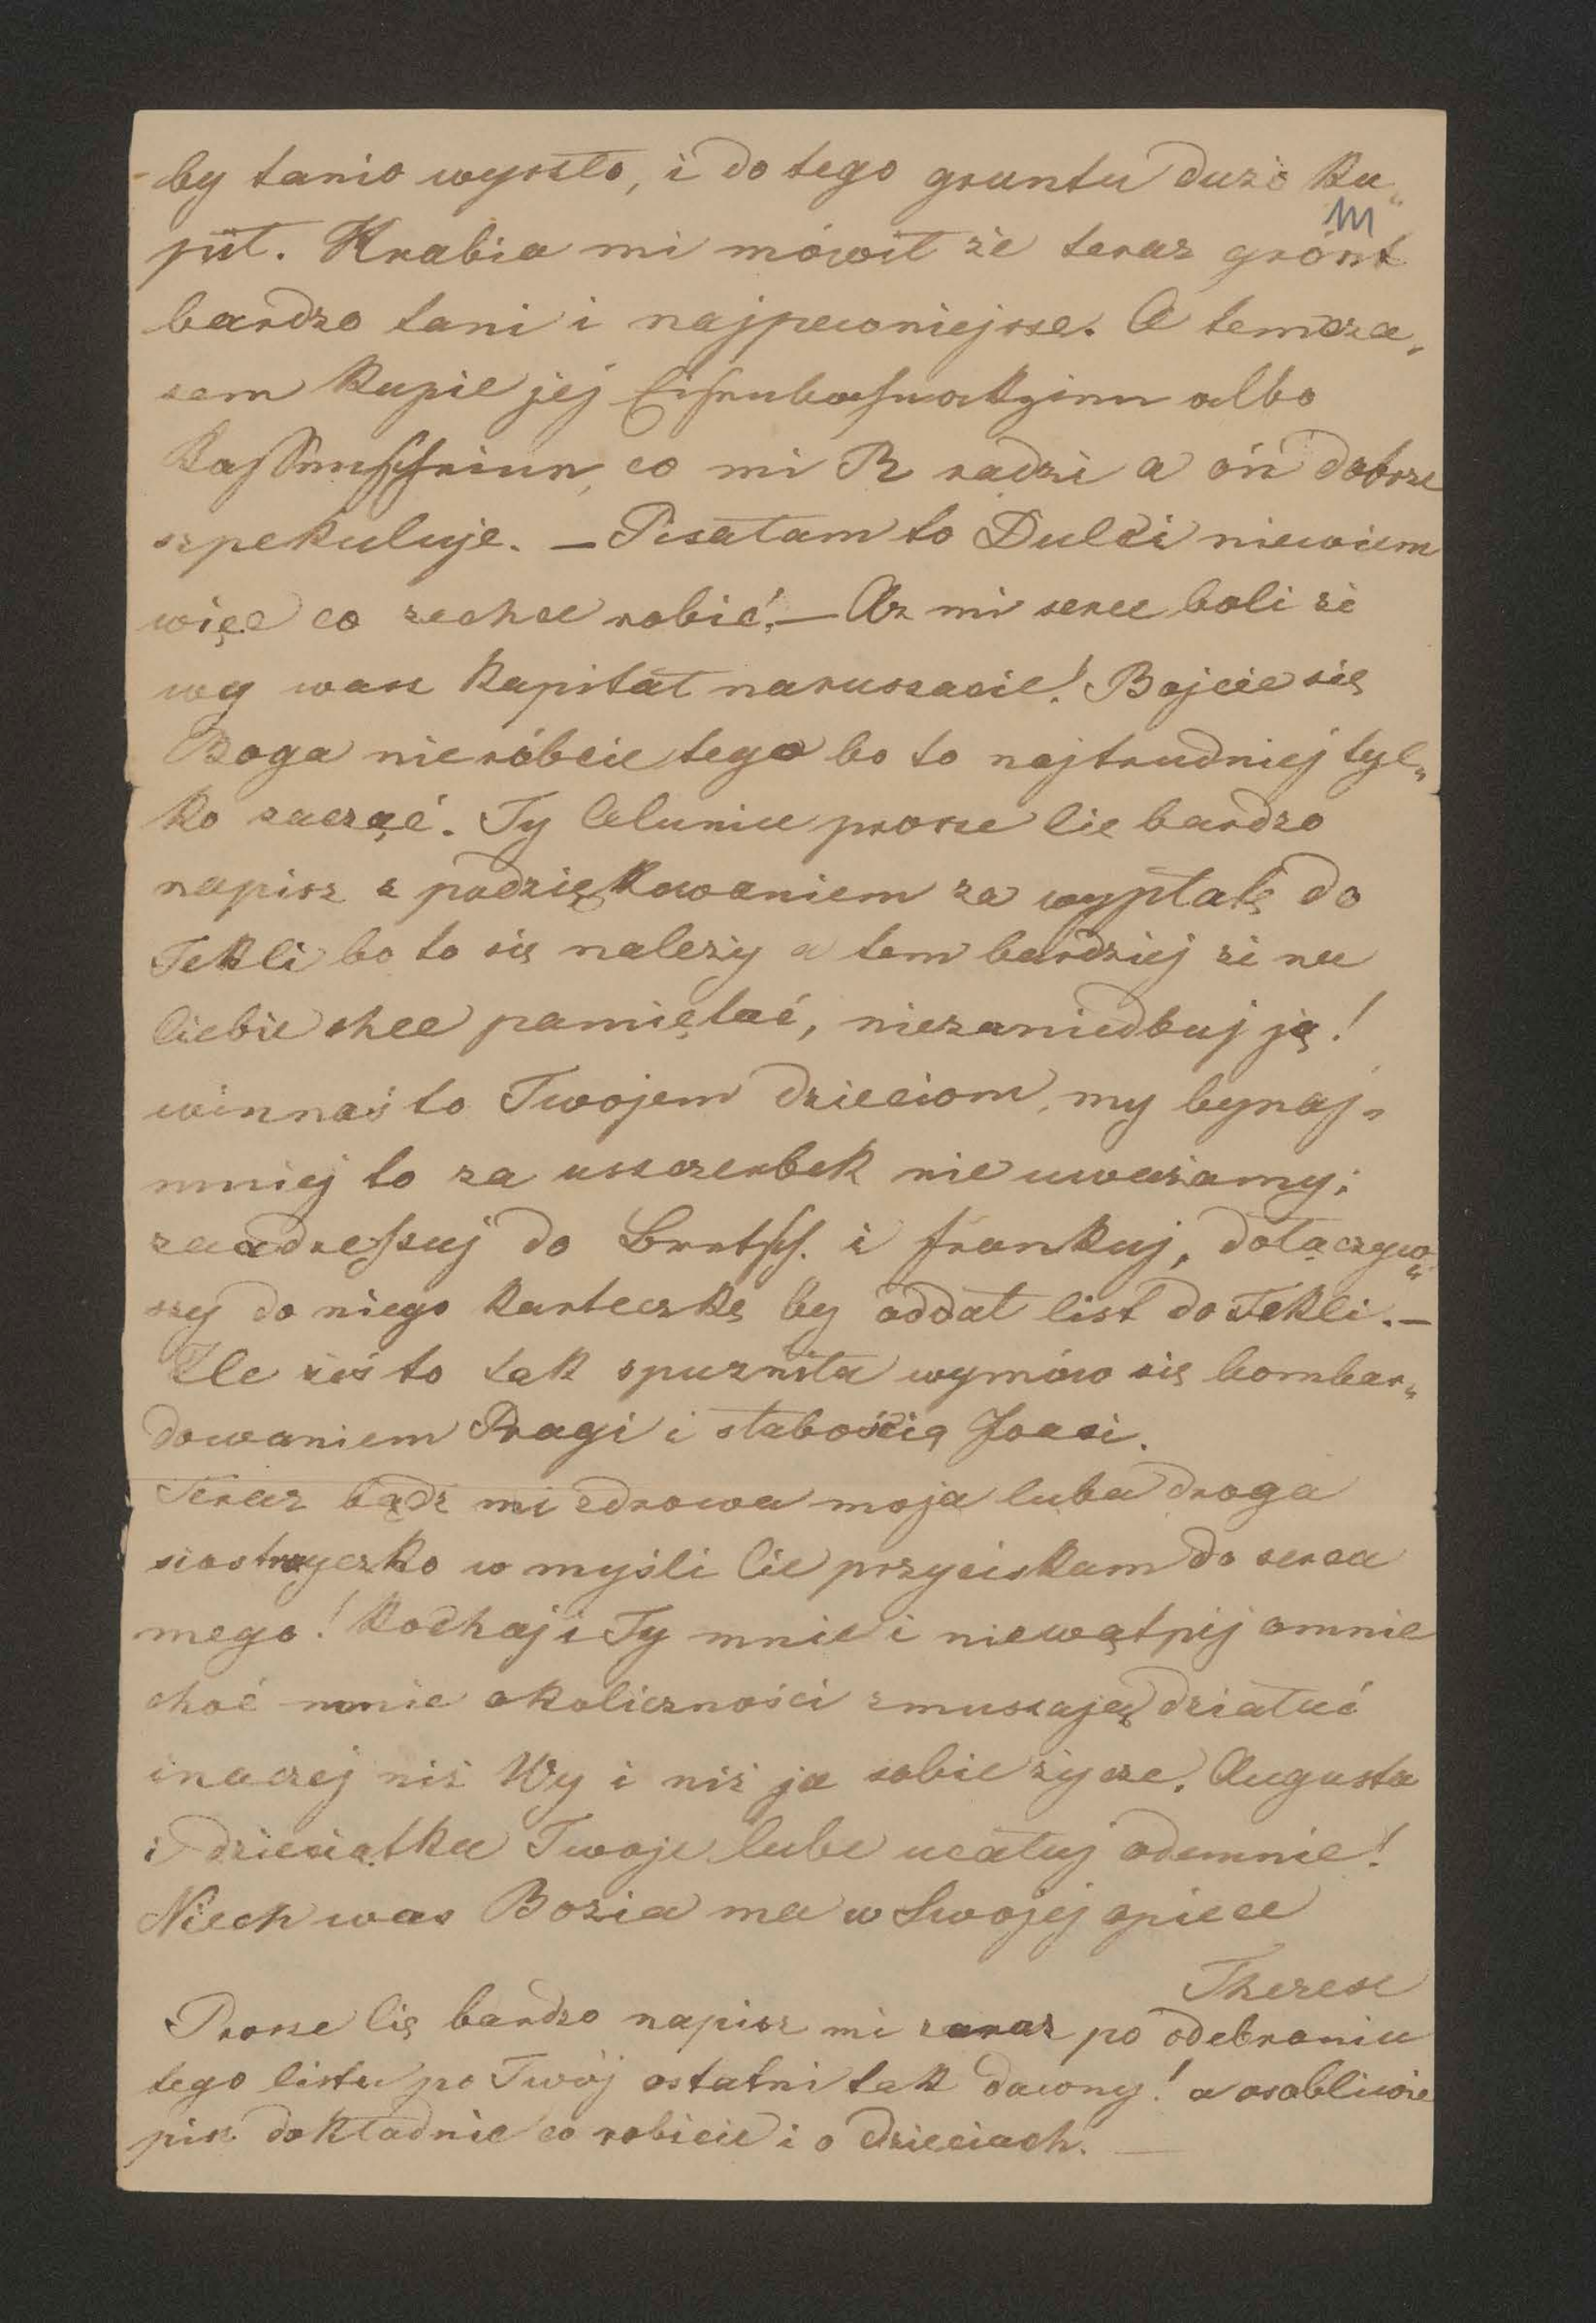 by tanio wyszło, i do tego gruntu dużo ku„
pił. Hrabia mi mówił że teraz grónt
bardzo tani i najpewniejsze. A temcza„
sem kupie jej Eisenbahnakzien albo
Kassenscheine, co mi R radzi a ón dobrze
szpekuluje. — Pisałam to Dulci niewiem
więc co zechce robić. — Az mi serce boli że
wy wasz kapitał naruszacie! Bojcie się
Boga nieróbcie tego bo to najtrudniej tyl„
ko zacząć. Ty Celuniu prosze Cie bardzo
napisz z podziękowaniem za wypłatę do
Tekli bo to się należy a tem bardziej że na
Ciebie chce pamiętać, niezaniedbuj ję!
winnaś to Twojem dzieciom, my bynaj„
mniej to za uszczerbek nie uważamy;
zaadressuj do Brntsch. i frankuj, dołączyw„
szy do niego karteczkę by oddał list do Tekli. —
Zle żeś to tak spuzniła wymów się bombar„
dowaniem Pragi i słabością Joasi.
Teraz bądz mi zdrowa moja luba droga
siostrzyczko w myśli Cie przyciskam do serca
mego! Kochaj i Ty mnie i niewątpij omnie
choć mnie okoliczności zmuszają działać
inaczej niż Wy i niż ja sobie życze. Augusta
i dzieciątka Twoje lube ucałuj odemnie!
Niech was Bozia ma w Swojej opiece
Therese
Prosze Cię bardzo napisz mi zaraz po odebraniu
tego listu po Twój ostatni tak dawny! a osobliwie
pisz dokładnie co robicie i o dzieciach. —